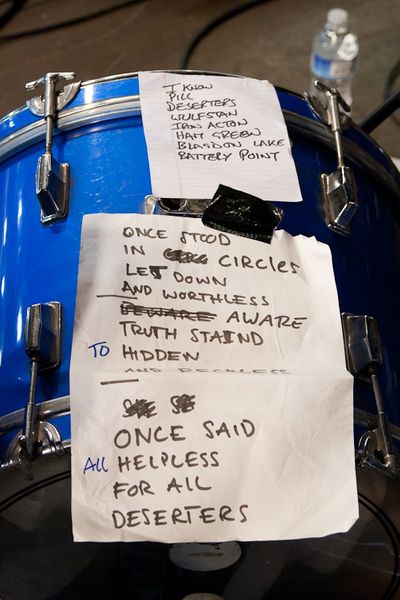 I KNOW
PILL
DESERTERS
WULFSTAN
IRON ACTON
HAM GREEN
BLAGDON LAKE
BATTERY POINT
ONCE STOOD
IN CIRCLES
LET DOWN
AND WORTHLESS
BEWARE AWARE
TRUTH STAIND
TO HIDDEN
AND RECKLESS
ONCE SAID
All HELPLESS
FOR All
DESERTERS